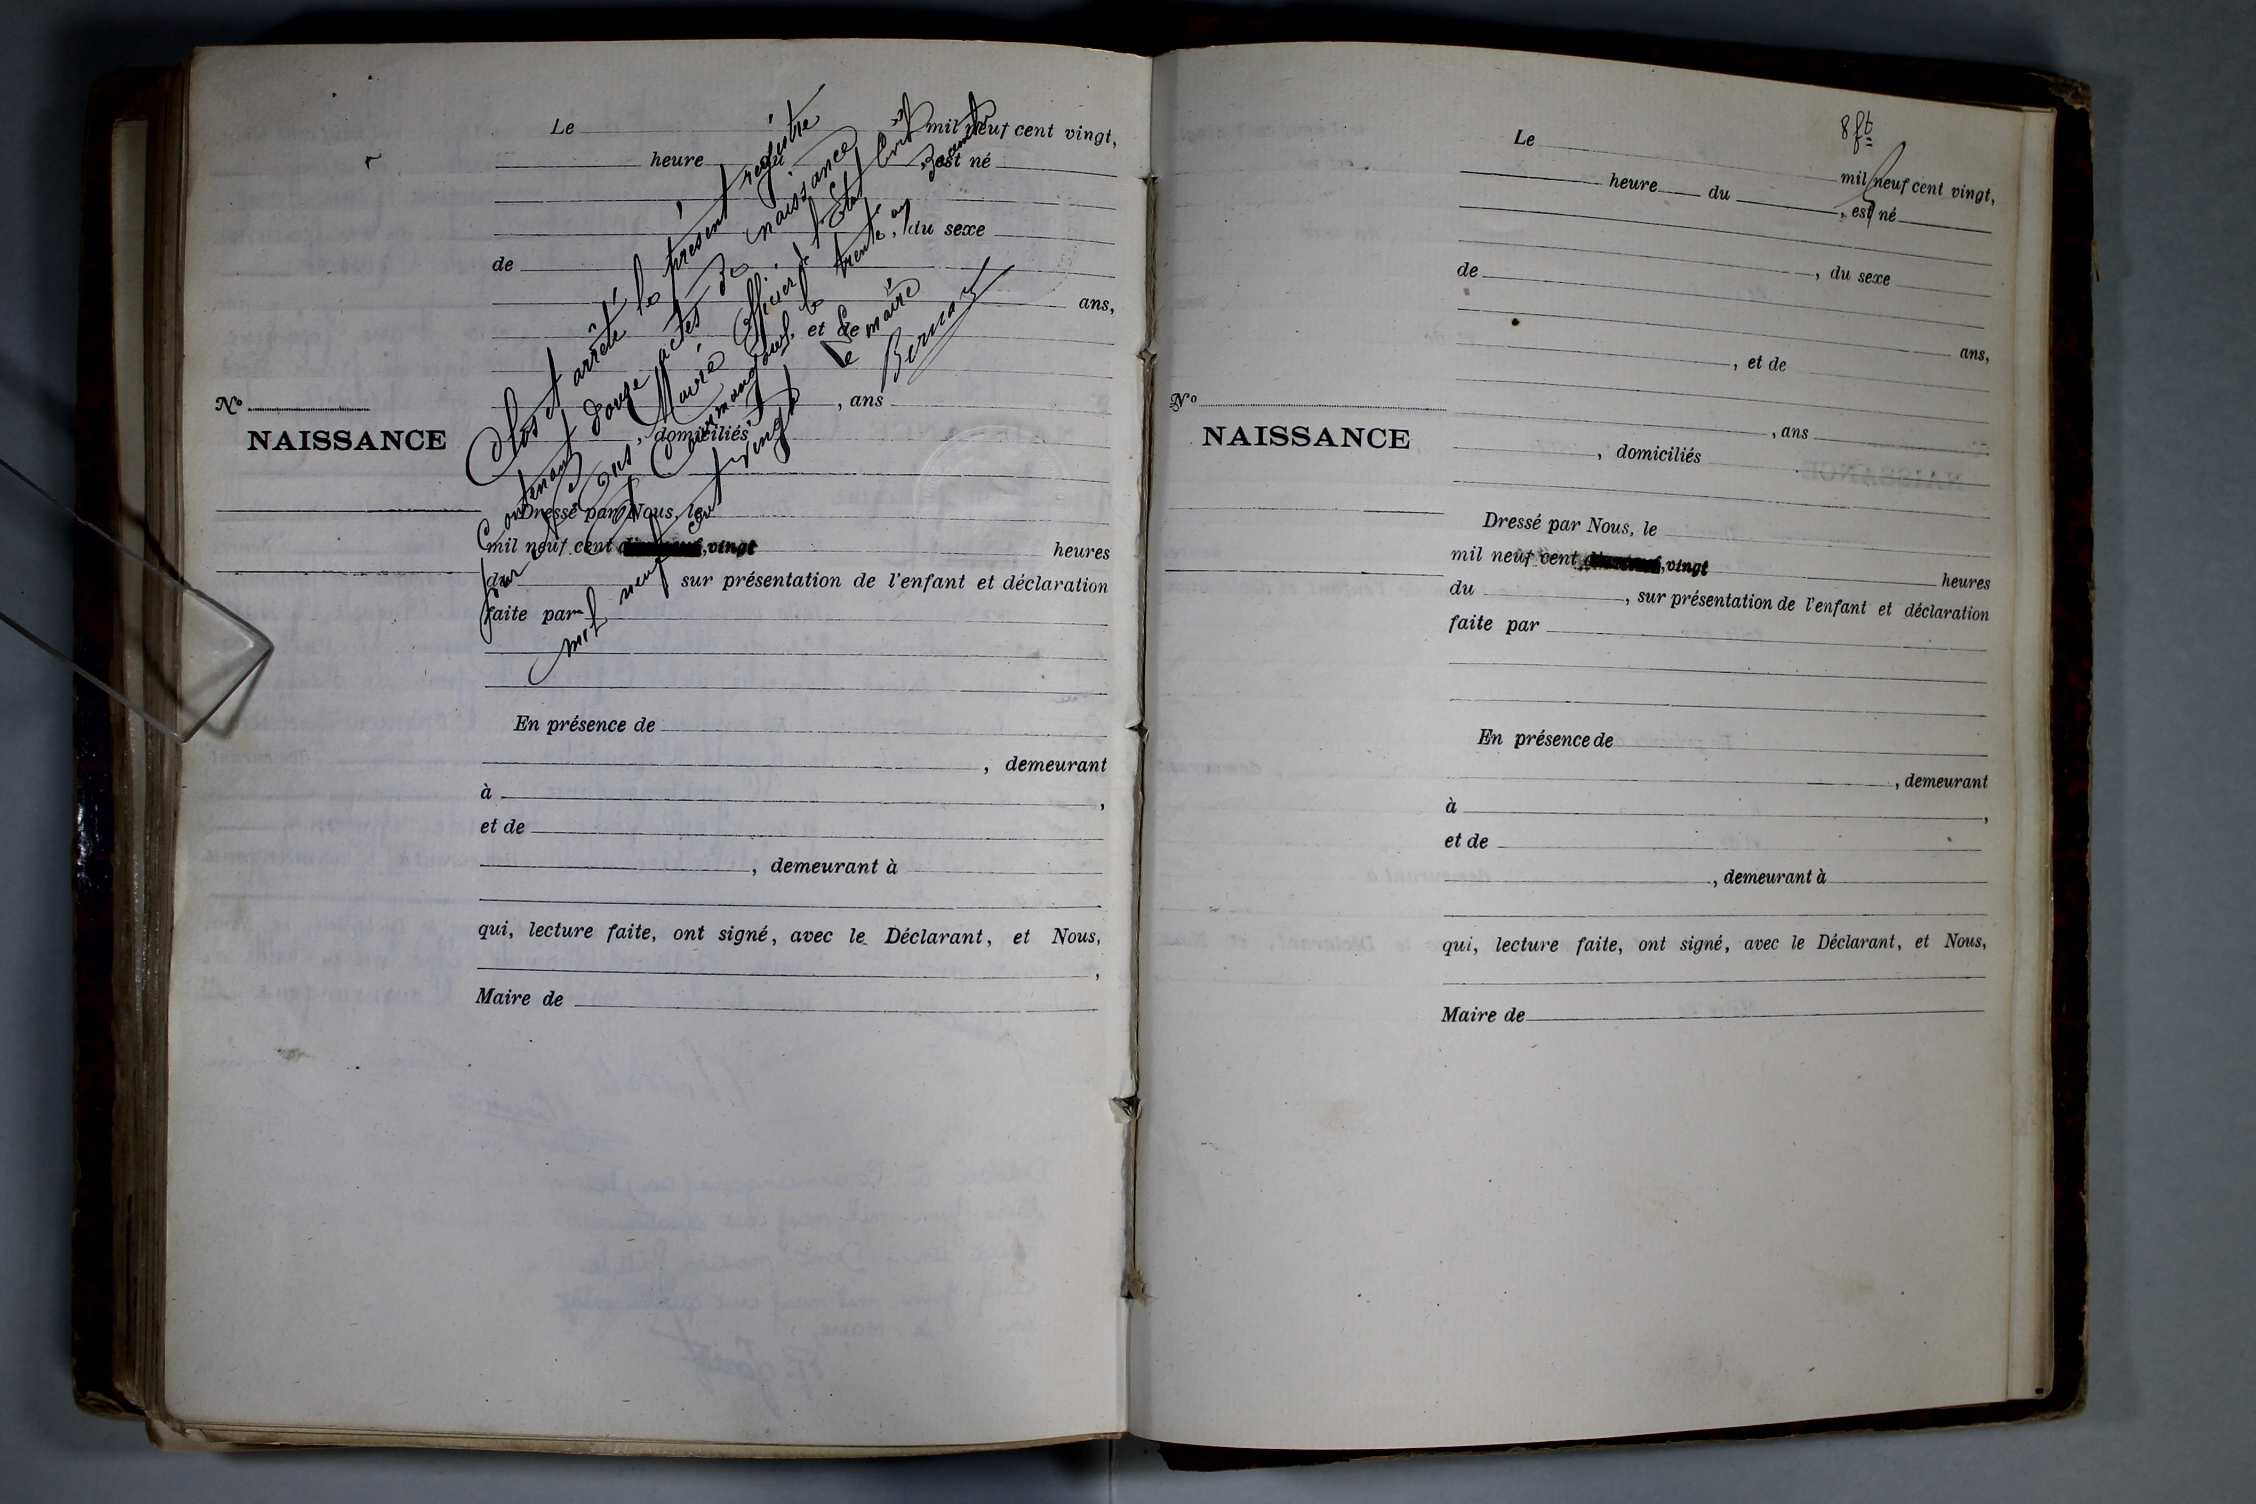 Le mil neuf cent vingt,
heure du , est né
, du sexe
de
ans,
et de
, ans
domiciliés
Nº
NAISSANCE
Dressé par Nous, le
mil neuf cent vingt heures
du sur présentation de l'enfant et déclaration
faite par
En présence de
, demeurant
à ,
et de
, demeurant à
qui, lecture faite, ont signé, avec le Déclarant, et Nous,
,
Maire de
Clos et arrêté le présent registre
contenant douze actes de naissance
par Nous, Maire Officier de l'Etat Civil
de Commang le trente et un Décembre
mil neuf cent vingt
Le maire
8 ft
Le mil neuf cent vingt,
heure du , est né
de , du sexe
ans,
, et de
, ans
, domiciliés
Nº
NAISSANCE
Dressé par Nous, le
mil neuf cent , vingt heures
du , sur présentation de l'enfant et déclaration
faite par
En présence de
, demeurant
à ,
et de
, demeurant à
qui, lecture faite, ont signé, avec le Déclarant, et Nous,
Maire de